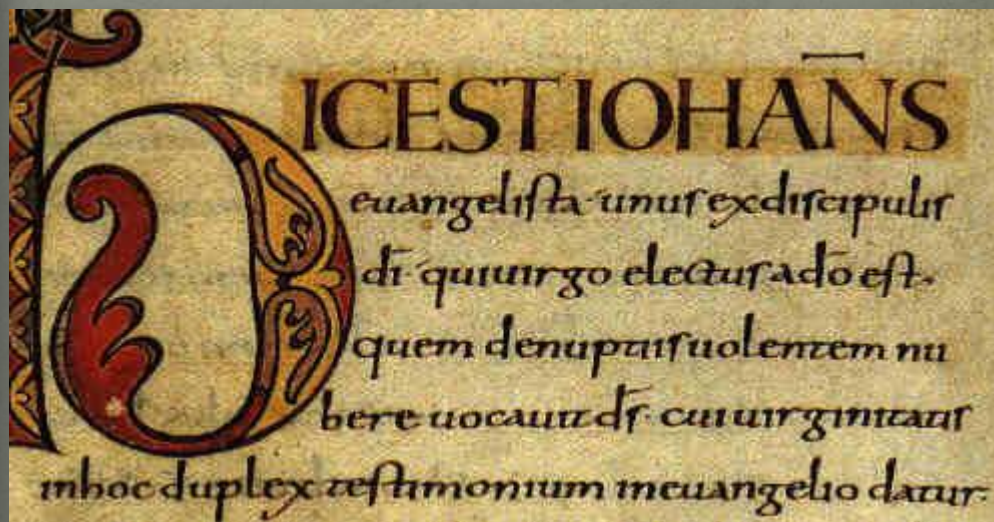 HIC EST IOHAN̄S
euangelista· unus ex discipulis
dī· qui uirgo electus a dō est·
quem de nuptiis uolentem nu
bere uocauit dς̄· cui uirginitatis
in hoc duplex testimonium in euangelio datur·